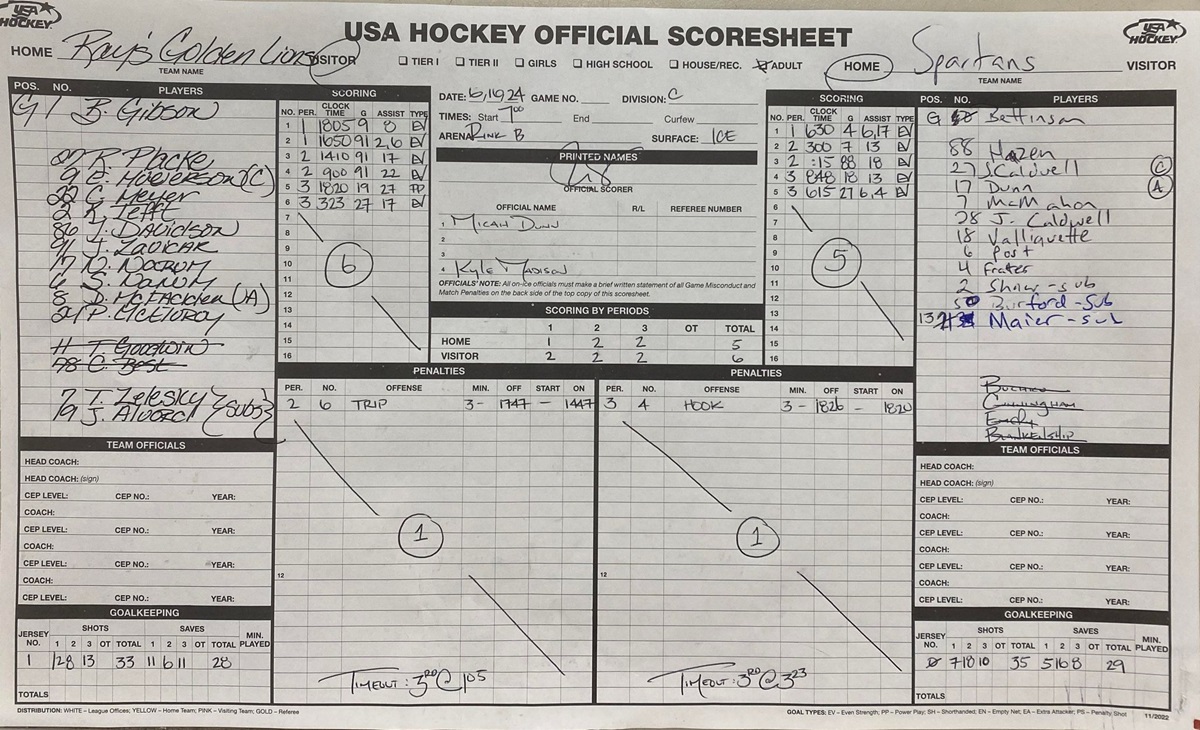 USA HOCKEY
USA HOCKEY OFFICIAL SCORESHEET
USA HOCKEY
HOME Ray's Golden Lions VISITOR
TEAM NAME
TIER I TIER II GIRLS HIGH SCHOOL HOUSE/REC. ADULT
HOME Spartans VISITOR
TEAM NAME
POS. NO. PLAYERS
G 1 B. Gibson
27 R. Placke
9 E. Howerson (C)
22 C. Meyer
2 R. Tefft
86 J. Davidson
91 J. Zavicar
17 N. Nocrum
6 S. Danum
8 D. McFadden (A)
21 P. McElroy
11 T. Goodwin
78 C. Best
7 T. Zelesky
19 J. Alvord {Subs}
SCORING
NO. PER. CLOCK TIME G ASSIST TYPE
1 1 1805 9 8 EV
2 1 1650 91 2,6 EV
3 2 1410 91 17 EV
4 2 900 91 22 EV
5 3 1820 19 27 PP
6 3 323 27 17 EV
7
8
9
10
11
12
13
14
15
16
6
DATE: 6,11,24 GAME NO. DIVISION: C
TIMES: Start 7:00 End Curfew
ARENA: RINK B SURFACE: ICE
PRINTED NAMES
OFFICIAL SCORER
OFFICIAL NAME R/L REFEREE NUMBER
1 MICAH DUNN
2
3
4 KYLE MADISON
OFFICIALS' NOTE: All on-ice officials must make a brief written statement of all Game Misconduct and
Match Penalties on the back side of the top copy of this scoresheet.
SCORING BY PERIODS
1 2 3 OT TOTAL
HOME 1 2 2 5
VISITOR 2 2 2 6
SCORING
NO. PER. CLOCK TIME G ASSIST TYPE
1 1 630 4 6,17 EV
2 2 300 7 13 EV
3 2 :15 88 18 EV
4 3 848 18 13 EV
5 3 615 27 6,4 EV
6
7
8
9
10
11
12
13
14
15
16
5
POS. NO. PLAYERS
G Bettinson
88 Hazen
27 S. Caldwell (C)
17 Dunn (A)
7 McMahon
28 J. Caldwell
18 Valliquette
6 Post
4 Frater
2 Shaw - sub
50 Burford - Sub
13 Maier - sub
CUNNINGHAM
BLANKENSHIP
PENALTIES
PER. NO. OFFENSE MIN. OFF START ON
2 6 TRIP 3- 1747 - 1447
1
12
TIMEOUT: 3RD @ 105
PENALTIES
PER. NO. OFFENSE MIN. OFF START ON
3 4 HOOK 3- 1826 - 1820
1
12
TIMEOUT: 3RD @ 323
TEAM OFFICIALS
HEAD COACH:
HEAD COACH: (sign)
CEP LEVEL: CEP NO.: YEAR:
COACH:
CEP LEVEL: CEP NO.: YEAR:
COACH:
CEP LEVEL: CEP NO.: YEAR:
COACH:
CEP LEVEL: CEP NO.: YEAR:
GOALKEEPING
JERSEY NO. SHOTS 1 2 3 OT TOTAL SAVES 1 2 3 OT TOTAL MIN. PLAYED
1 12 8 13 33 11 6 11 28
TOTALS
TEAM OFFICIALS
HEAD COACH:
HEAD COACH: (sign)
CEP LEVEL: CEP NO.: YEAR:
COACH:
CEP LEVEL: CEP NO.: YEAR:
COACH:
CEP LEVEL: CEP NO.: YEAR:
COACH:
CEP LEVEL: CEP NO.: YEAR:
GOALKEEPING
JERSEY NO. SHOTS 1 2 3 OT TOTAL SAVES 1 2 3 OT TOTAL MIN. PLAYED
0 7 18 10 35 5 16 8 29
TOTALS
DISTRIBUTION: WHITE – League Offices; YELLOW – Home Team; PINK – Visiting Team; GOLD – Referee
GOAL TYPES: EV – Even Strength; PP – Power Play; SH – Shorthanded; EN – Empty Net; EA – Extra Attacker; PS – Penalty Shot
11/2022